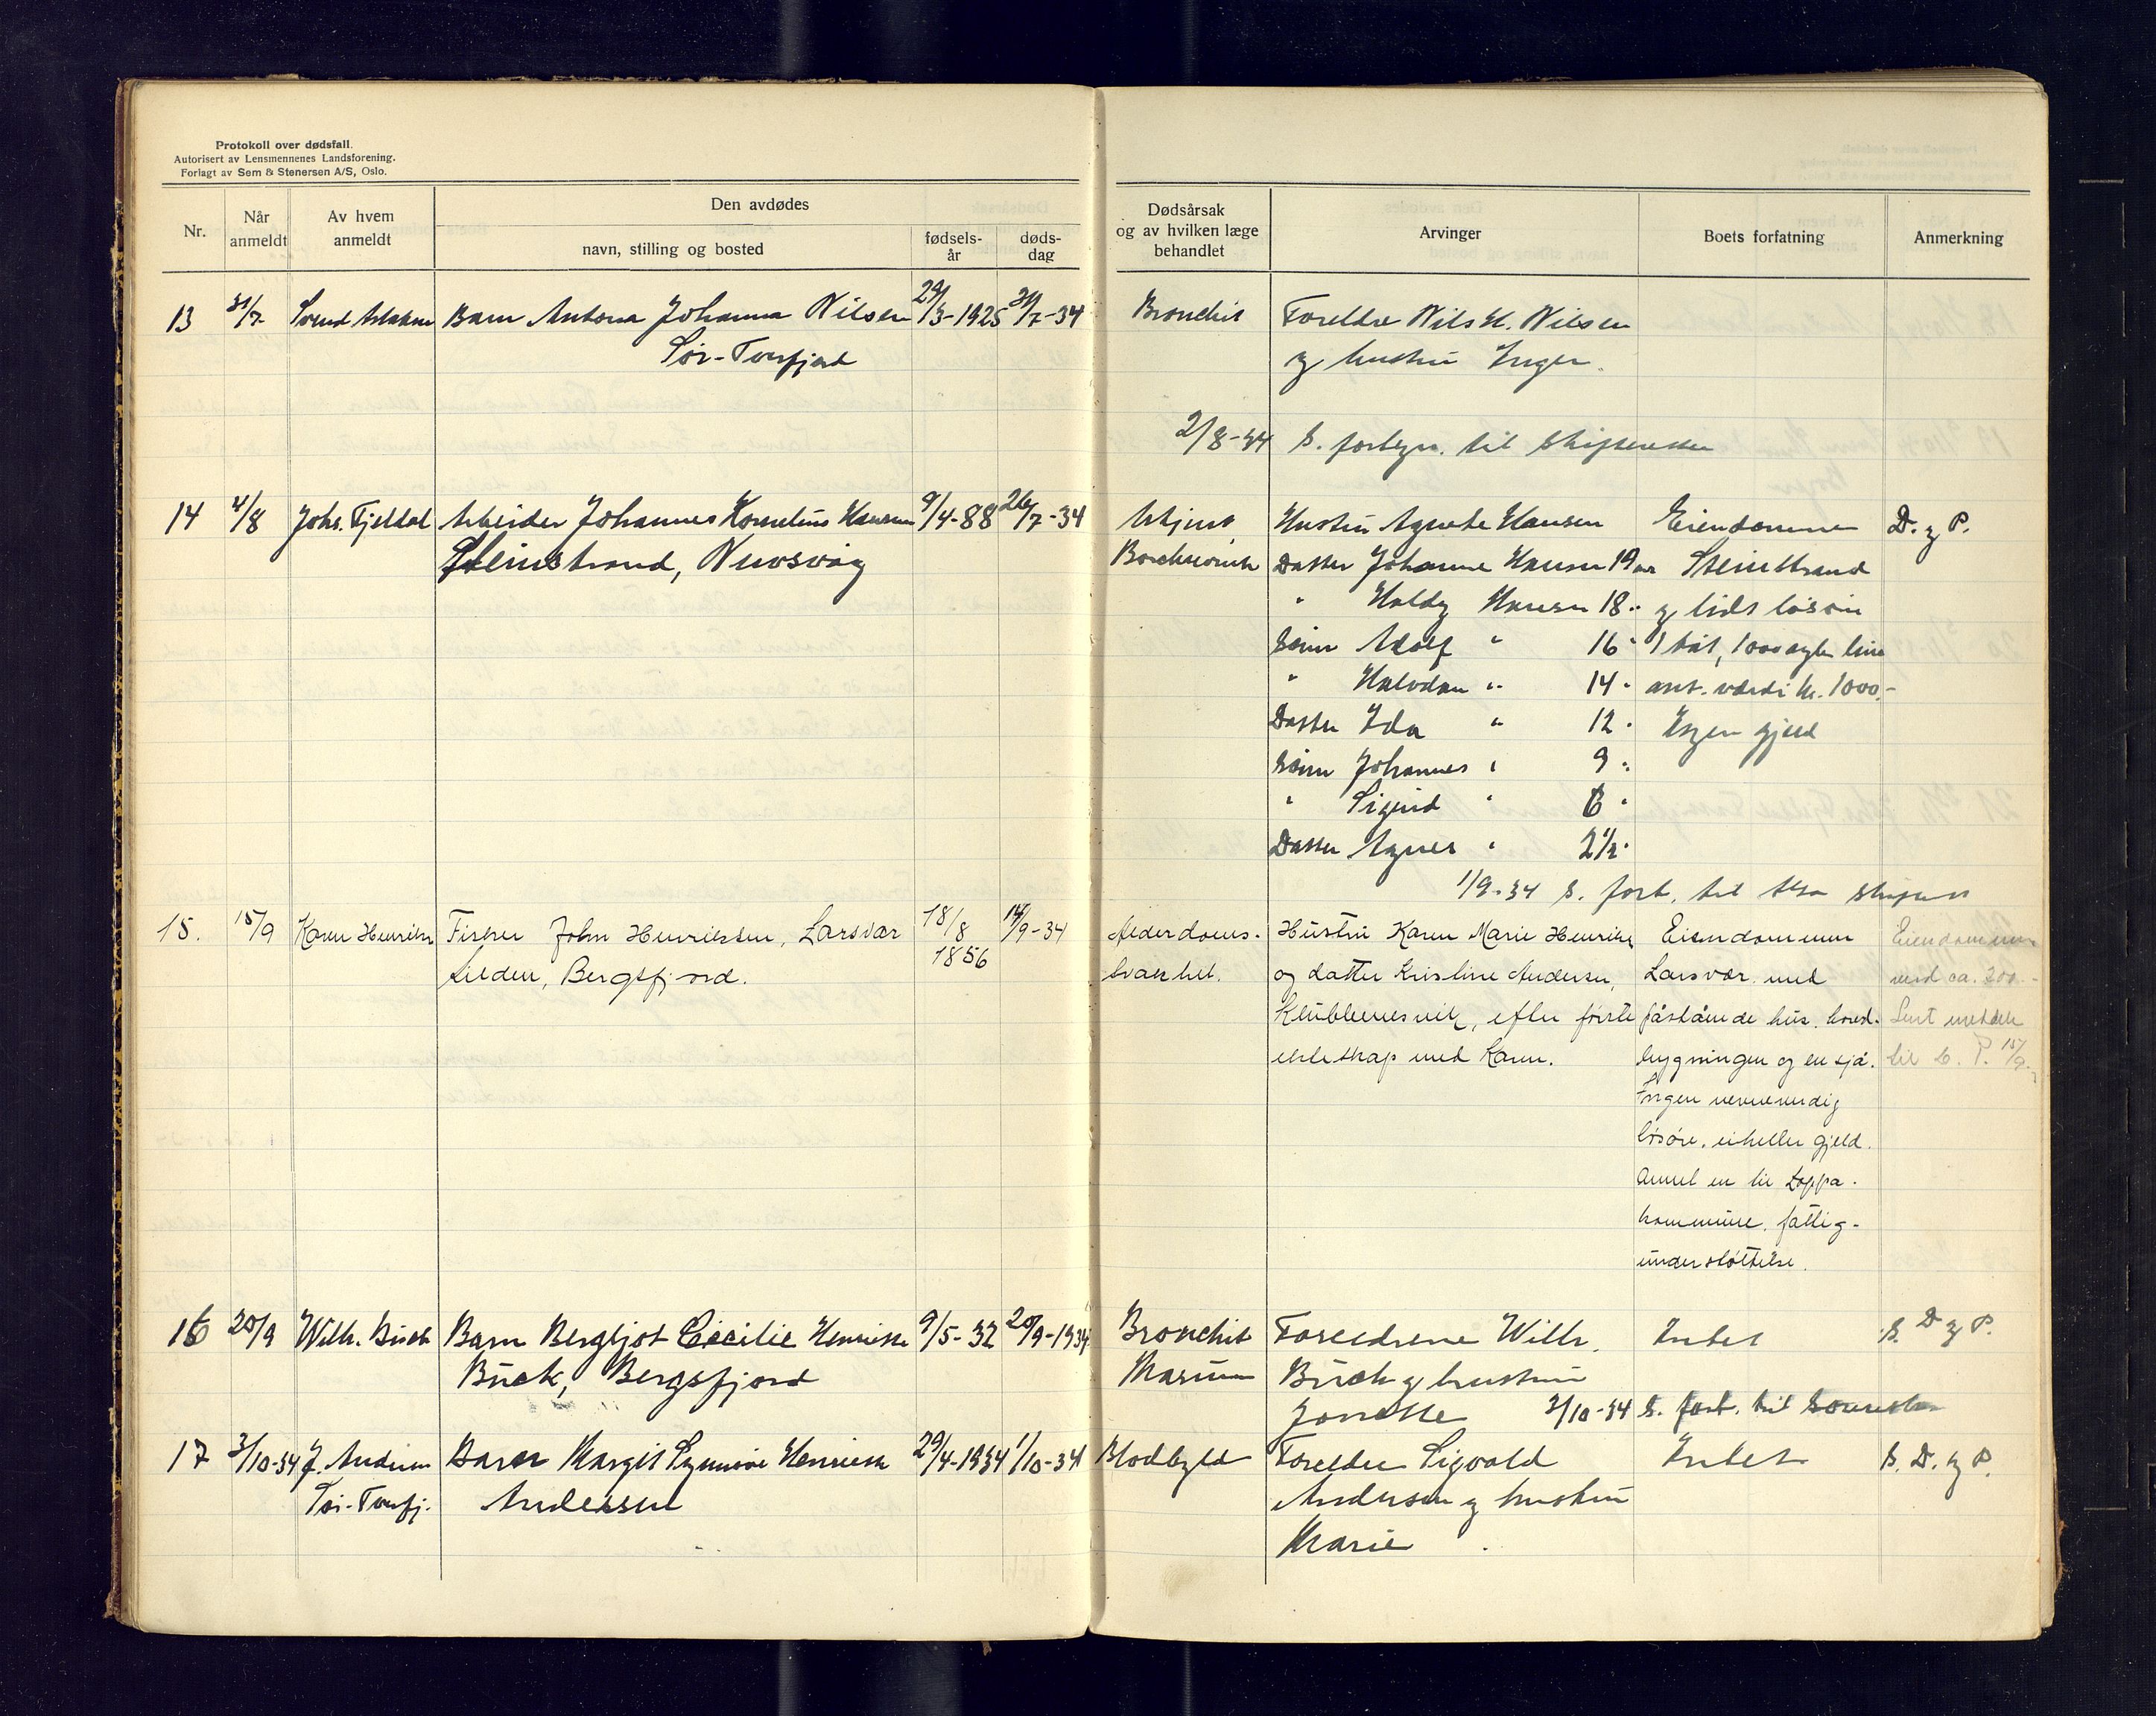 Protokoll over dødsfall.
Autorisert av Lensmennenes Landsforening.
Forlagt av Sem & Stenersen A/S, Oslo.
Nr.
Når anmeldt
Av hvem anmeldt
Den avdødes
navn, stilling og bosted
fødsels-år
døds-dag
Dødsårsak og av hvilken læge behandlet
Arvinger
Boets forfatning
Anmerkning
13 31/7 Barn Antona Johanna Nilsen 29/3-1925 31/7-34 Bronchit Foreldre Nils H. Nilsen
Sør-Tverfjord og hustru Inger
2/8-34 S. fortegn. til Skifteretten
14 4/8 Johs. Fjeldal Arbeider Johannes Kornelius Hansen 9/4-88 26/7-34 Hustru Agnete Hansen Eiendommen D. og P.
Steinstrand, Nuvsvåg Datter Johanne Hansen 19 år Steinstrand
" Hansen 18 " og lidt løsøre
Sønn Adolf " 16 " 1 båt, 1000 line
" Halvdan " 14 " ant. værdi kr. 1000.-
Datter Ida " 12 " Ingen gjeld
Sønn Johannes " 9 "
" Sigurd " 6 "
Datter Agnes " 2 1/2 "
1/9-34 S. fort. til
15. 15/9 Karen Henriksen Fisker John Henriksen, Larsvær 18/8 1856 14/9-34 Alderdoms- Hustru Karen Marie Henriksen Eiendommen Eiendommen
Silden, Bergsfjord. svakhet. og datter Kristine Andersen, Larsvær med verd ca. 200.-
Klubbenesvik, efter første påstående hus, hoved- Sent
ekteskap med Karen. bygningen og en sjå. til P. 15/9
Ingen nevneverdig
løsøre, eiheller gjeld.
Annet en til Loppa
kommune, fattig-
understøttelse.
16 20/9 Wilh. Buck Barn Bergljot Cecilie Henriette 9/5-32 20/9-1934 Bronchit Foreldrene Wilh. Intet S. D og P.
Buck, Bergsfjord Buck og hustru
Jonette 3/10-34 S. fort. til
17 3/10-34 J. Andersen Barn Margit Synnøve Henriette 29/4-1934 1/10-34 Foreldre Sigvald Intet S. D. og P.
Sør-Tverfj. Andersen Andersen og hustru
Marie